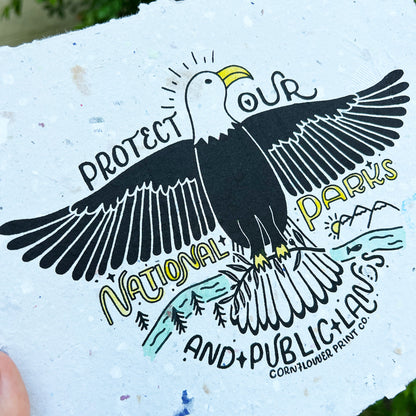 PROTECT OUR
NATIONAL PARKS
AND PUBLIC LANDS
CORNFLOWER PRINT CO.